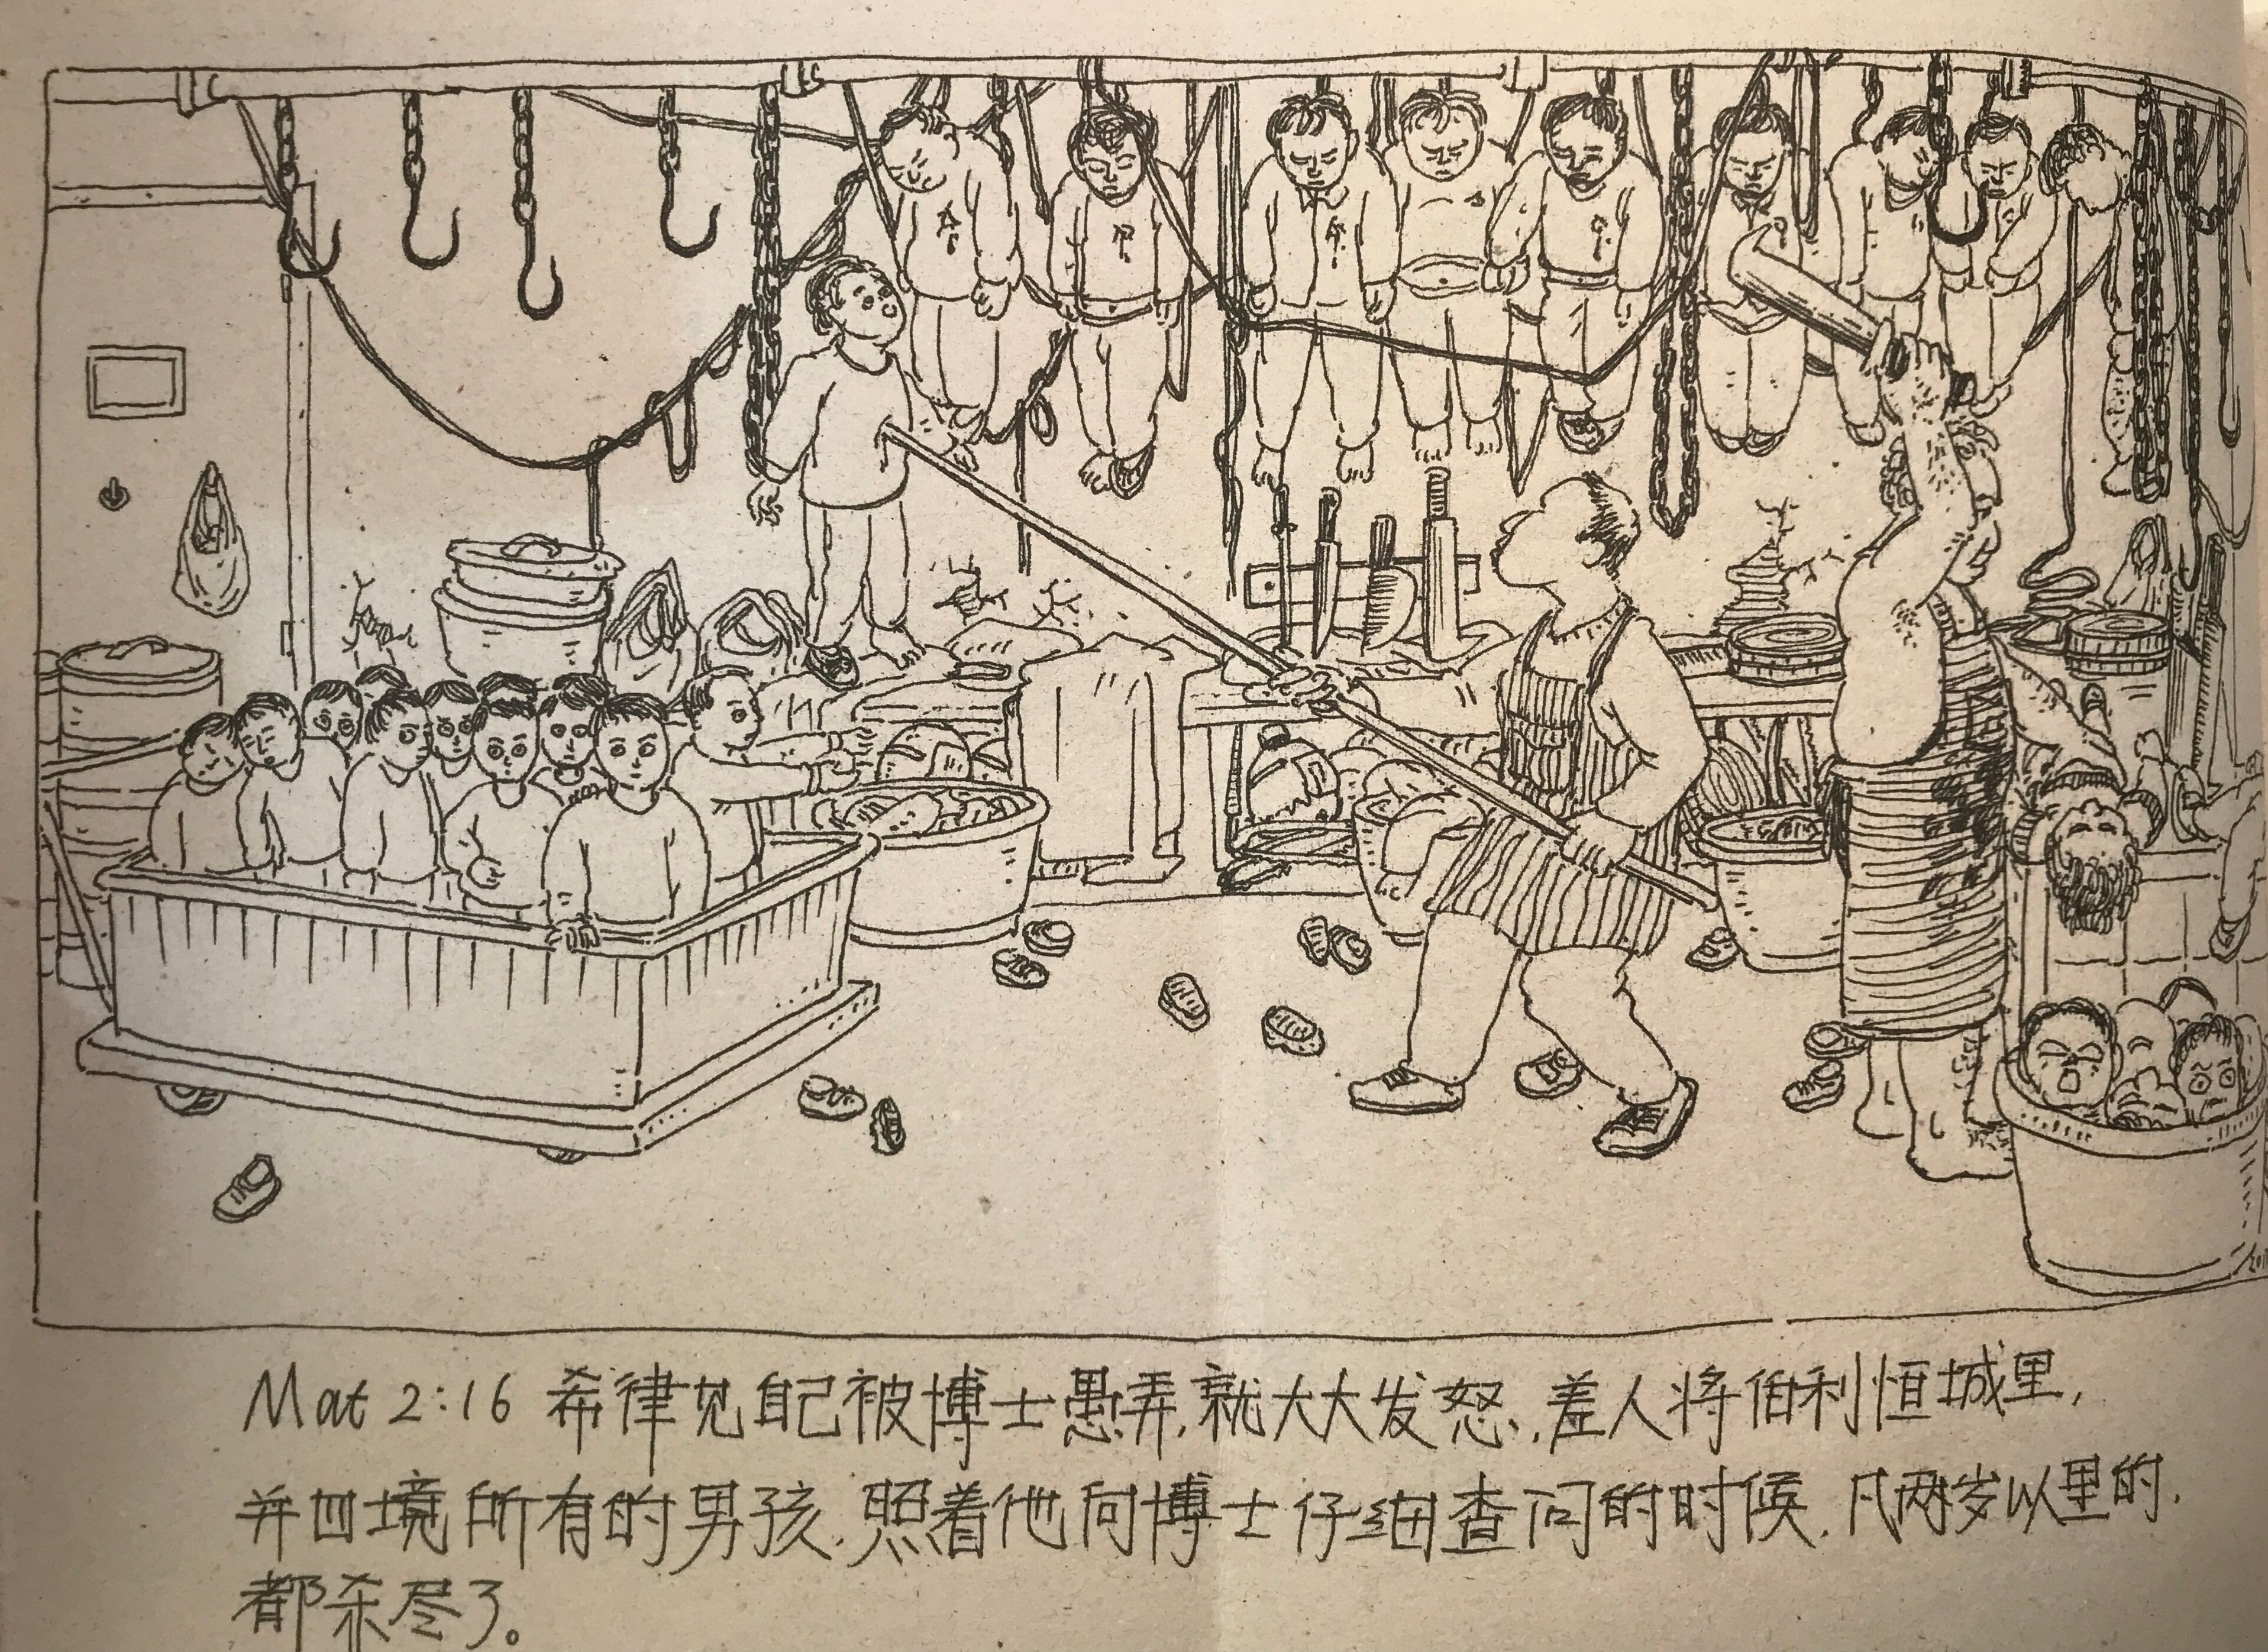 Mat 2:16 希律见自己被博士愚弄,就大大发怒,差人将伯利恒城里,
并四境所有的男孩,照着他向博士仔细查问的时候,凡两岁以里的,
都杀尽了。